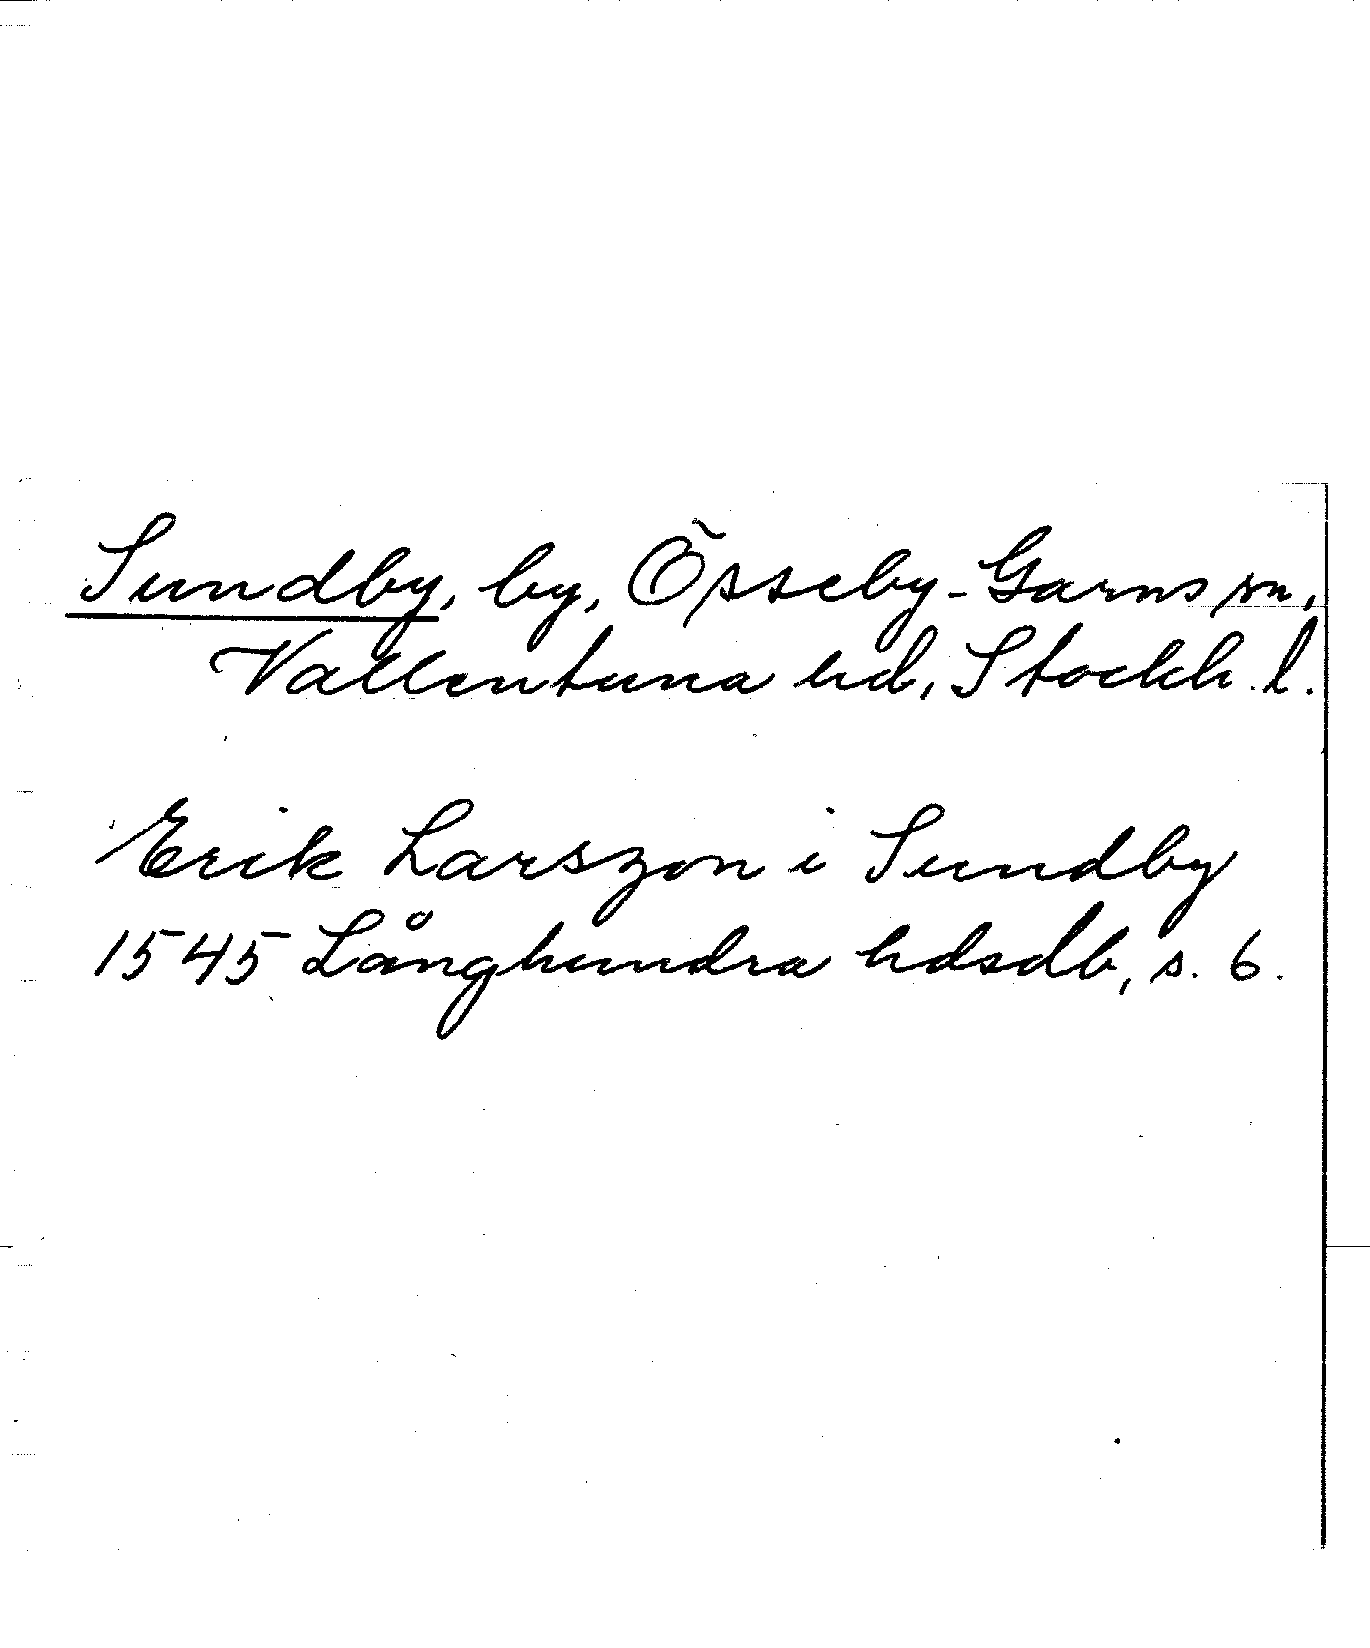 Sundby, by, Össeby-Garns sn,
Vallentuna hd, Stockh. l.
Erik Larszon i Sundby
1545 Långhundra hdsdb, s. 6.